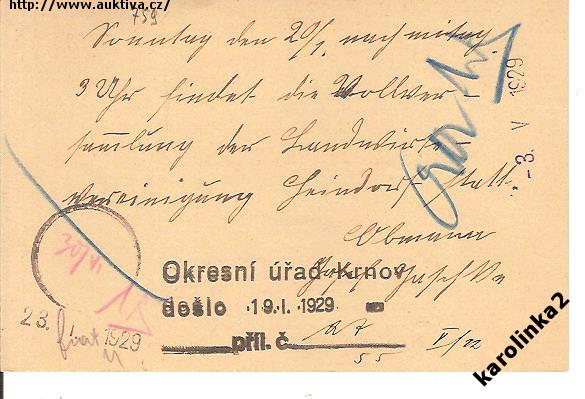 http://www.auktiva.cz/
759
Sonntag den 20/1. nachmittag
3 Uhr findet die Vollver-
sammlung der Landwirte-
vereinigung Heindorf statt.
Obmann
- 3. V 1929
30/VI.
Okresní úřad Krnov
došlo 19.I. 1929
příl. č.
23. 1929
V/22
karolinka2